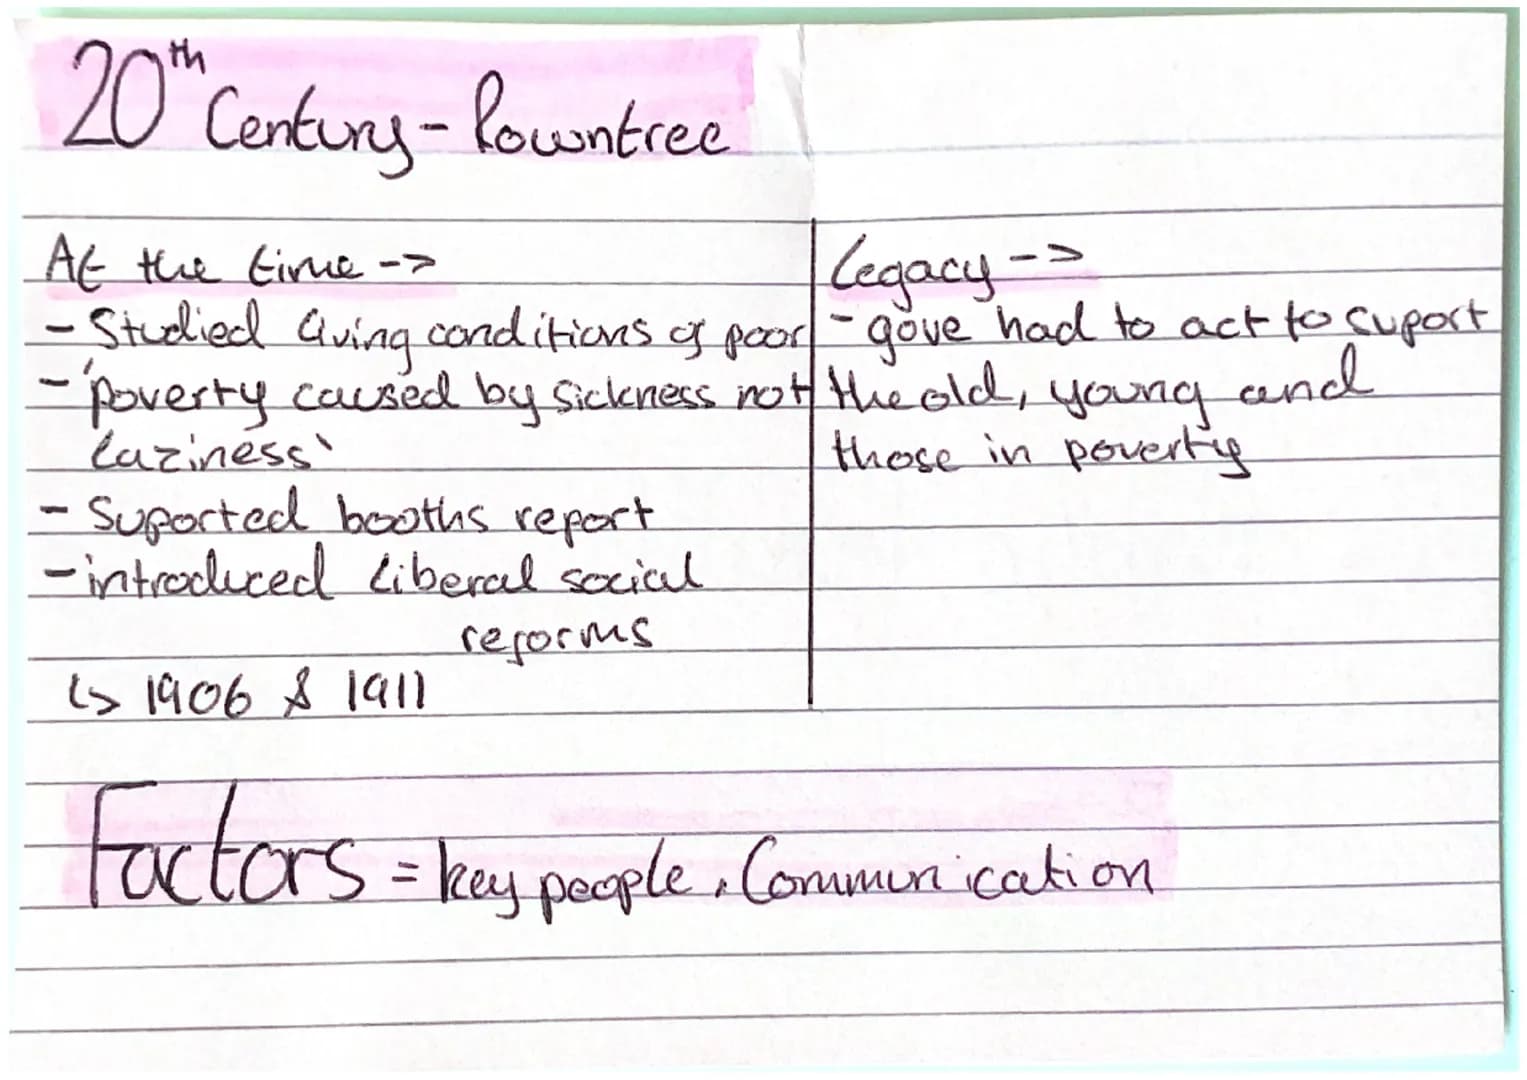 20th Century - Rowntree
At the time -->
- Studied living conditions of poor
- 'poverty caused by sickness not
laziness'
- Suported booths report
- introduced liberal social
reforms
↳ 1906 & 1911
Legacy -->
- gove had to act to suport
the old, young and
those in poverty
Factors = key people, Communication